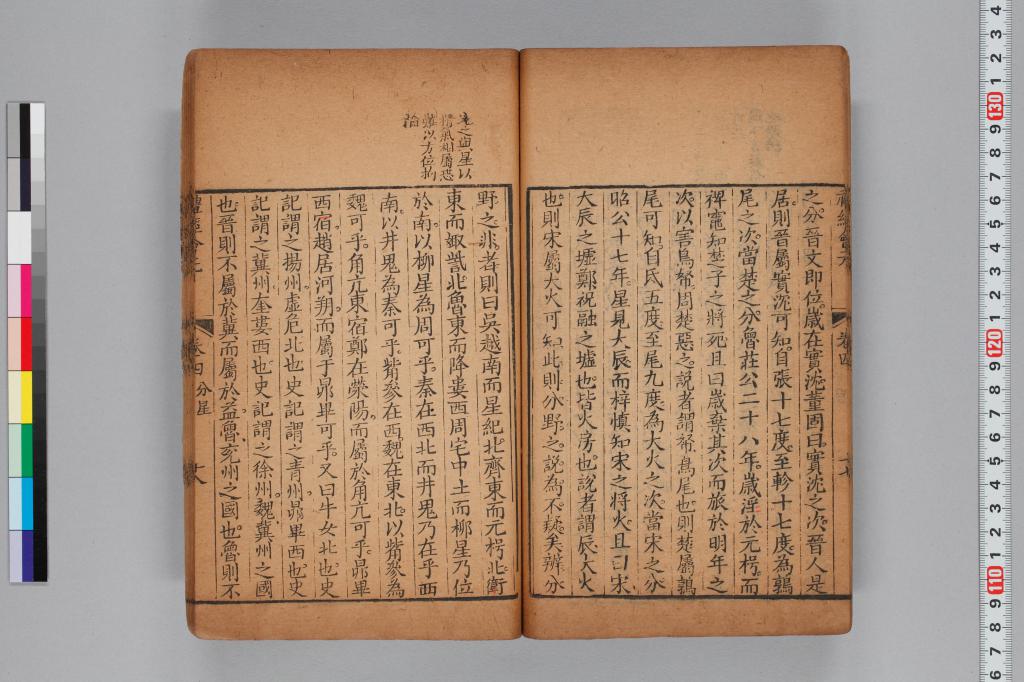 之分。晉文即位。歲在實沈。董因曰。實沈之次。晉人是
居。則晉屬實沈可知。自張十七度。至軫十七度。為鶉
尾之次。當楚之分。魯莊公二十八年。歲淫於元枵。而
裨竈知楚子之將死。且曰。歲棄其次而旅於明年之
次。以害鳥帑。周楚惡之。說者謂帑鳥尾也。則楚屬鶉
尾可知。自氐五度至尾九度為大火之次。當宋之分
昭公十七年。星見大辰。而梓慎知宋之將火。且曰。宋
大辰之墟。鄭祝融之墟也。皆火房也。說者謂辰大火
也。則宋屬大火可知。此則分野之說為不疑矣。辨分
野之非者則曰。吳越南而星紀北。齊東而元枵北。衛
東而娵訾北。魯東而降婁西。周宅中土而柳星乃位
於南。以柳星為周可乎。秦在西北而井鬼乃在乎西
南。以井鬼為秦可乎。觜參在西。魏在東北。以觜參為
魏可乎。角亢東宿。鄭在滎陽。而屬於角亢可乎。昴畢
西宿。趙居河朔。而屬于昴畢可乎。又曰牛女北也。史
記謂之揚州。虛危北也。史記謂之青州。昴畢西也。史
記謂之冀州。奎婁西也。史記謂之徐州。魏冀州之國
也。晉則不屬於冀而屬於益。魯兗州之國也。魯則不
卷四 分星
地之與星以
精氣相屬恐
難以方位拘
論